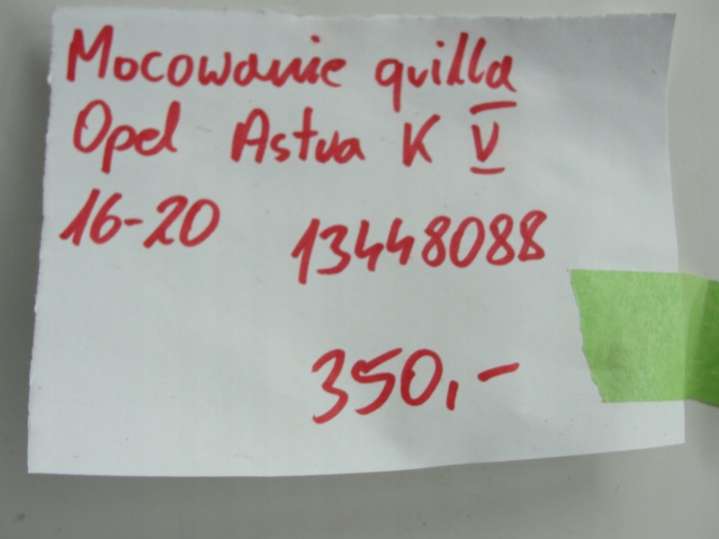 Mocowanie grilla
Opel Astra K V
16-20 13448088
350,-